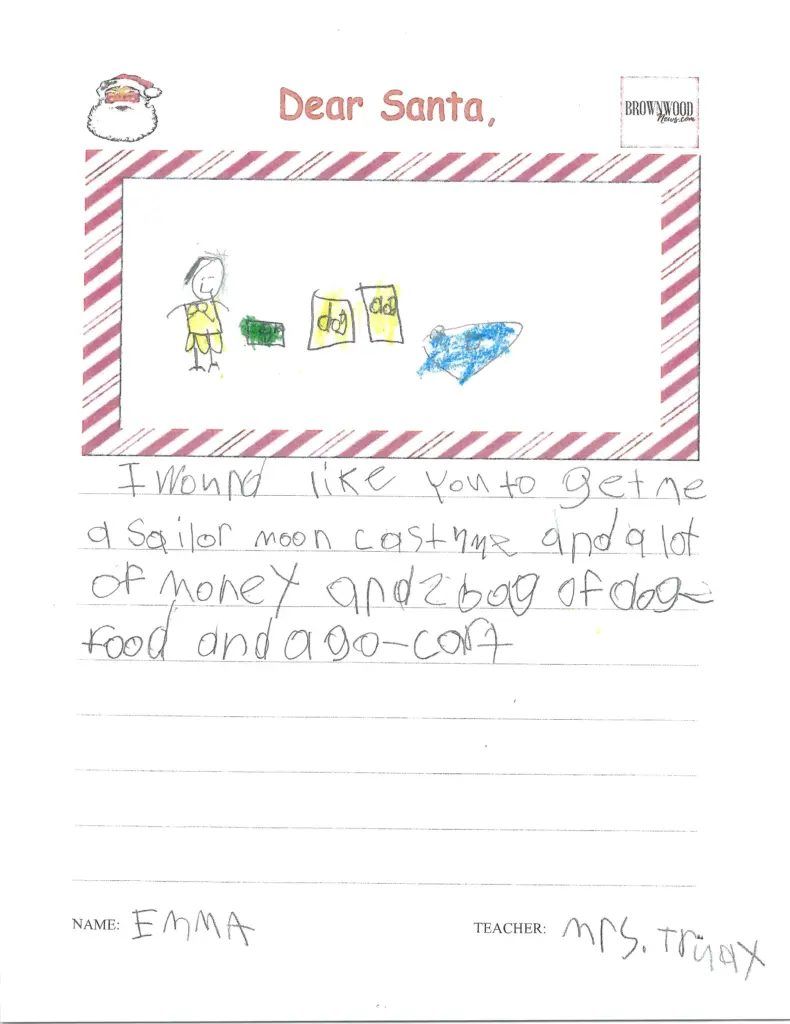 Dear Santa,
BROWNWOOD
News.com
dog
dog
I Wound like you to get me
a sailor moon castyme and a lot
of money and 2 bag of dog-
food and a go-cart
NAME: EMMA
TEACHER: Mrs. Truax